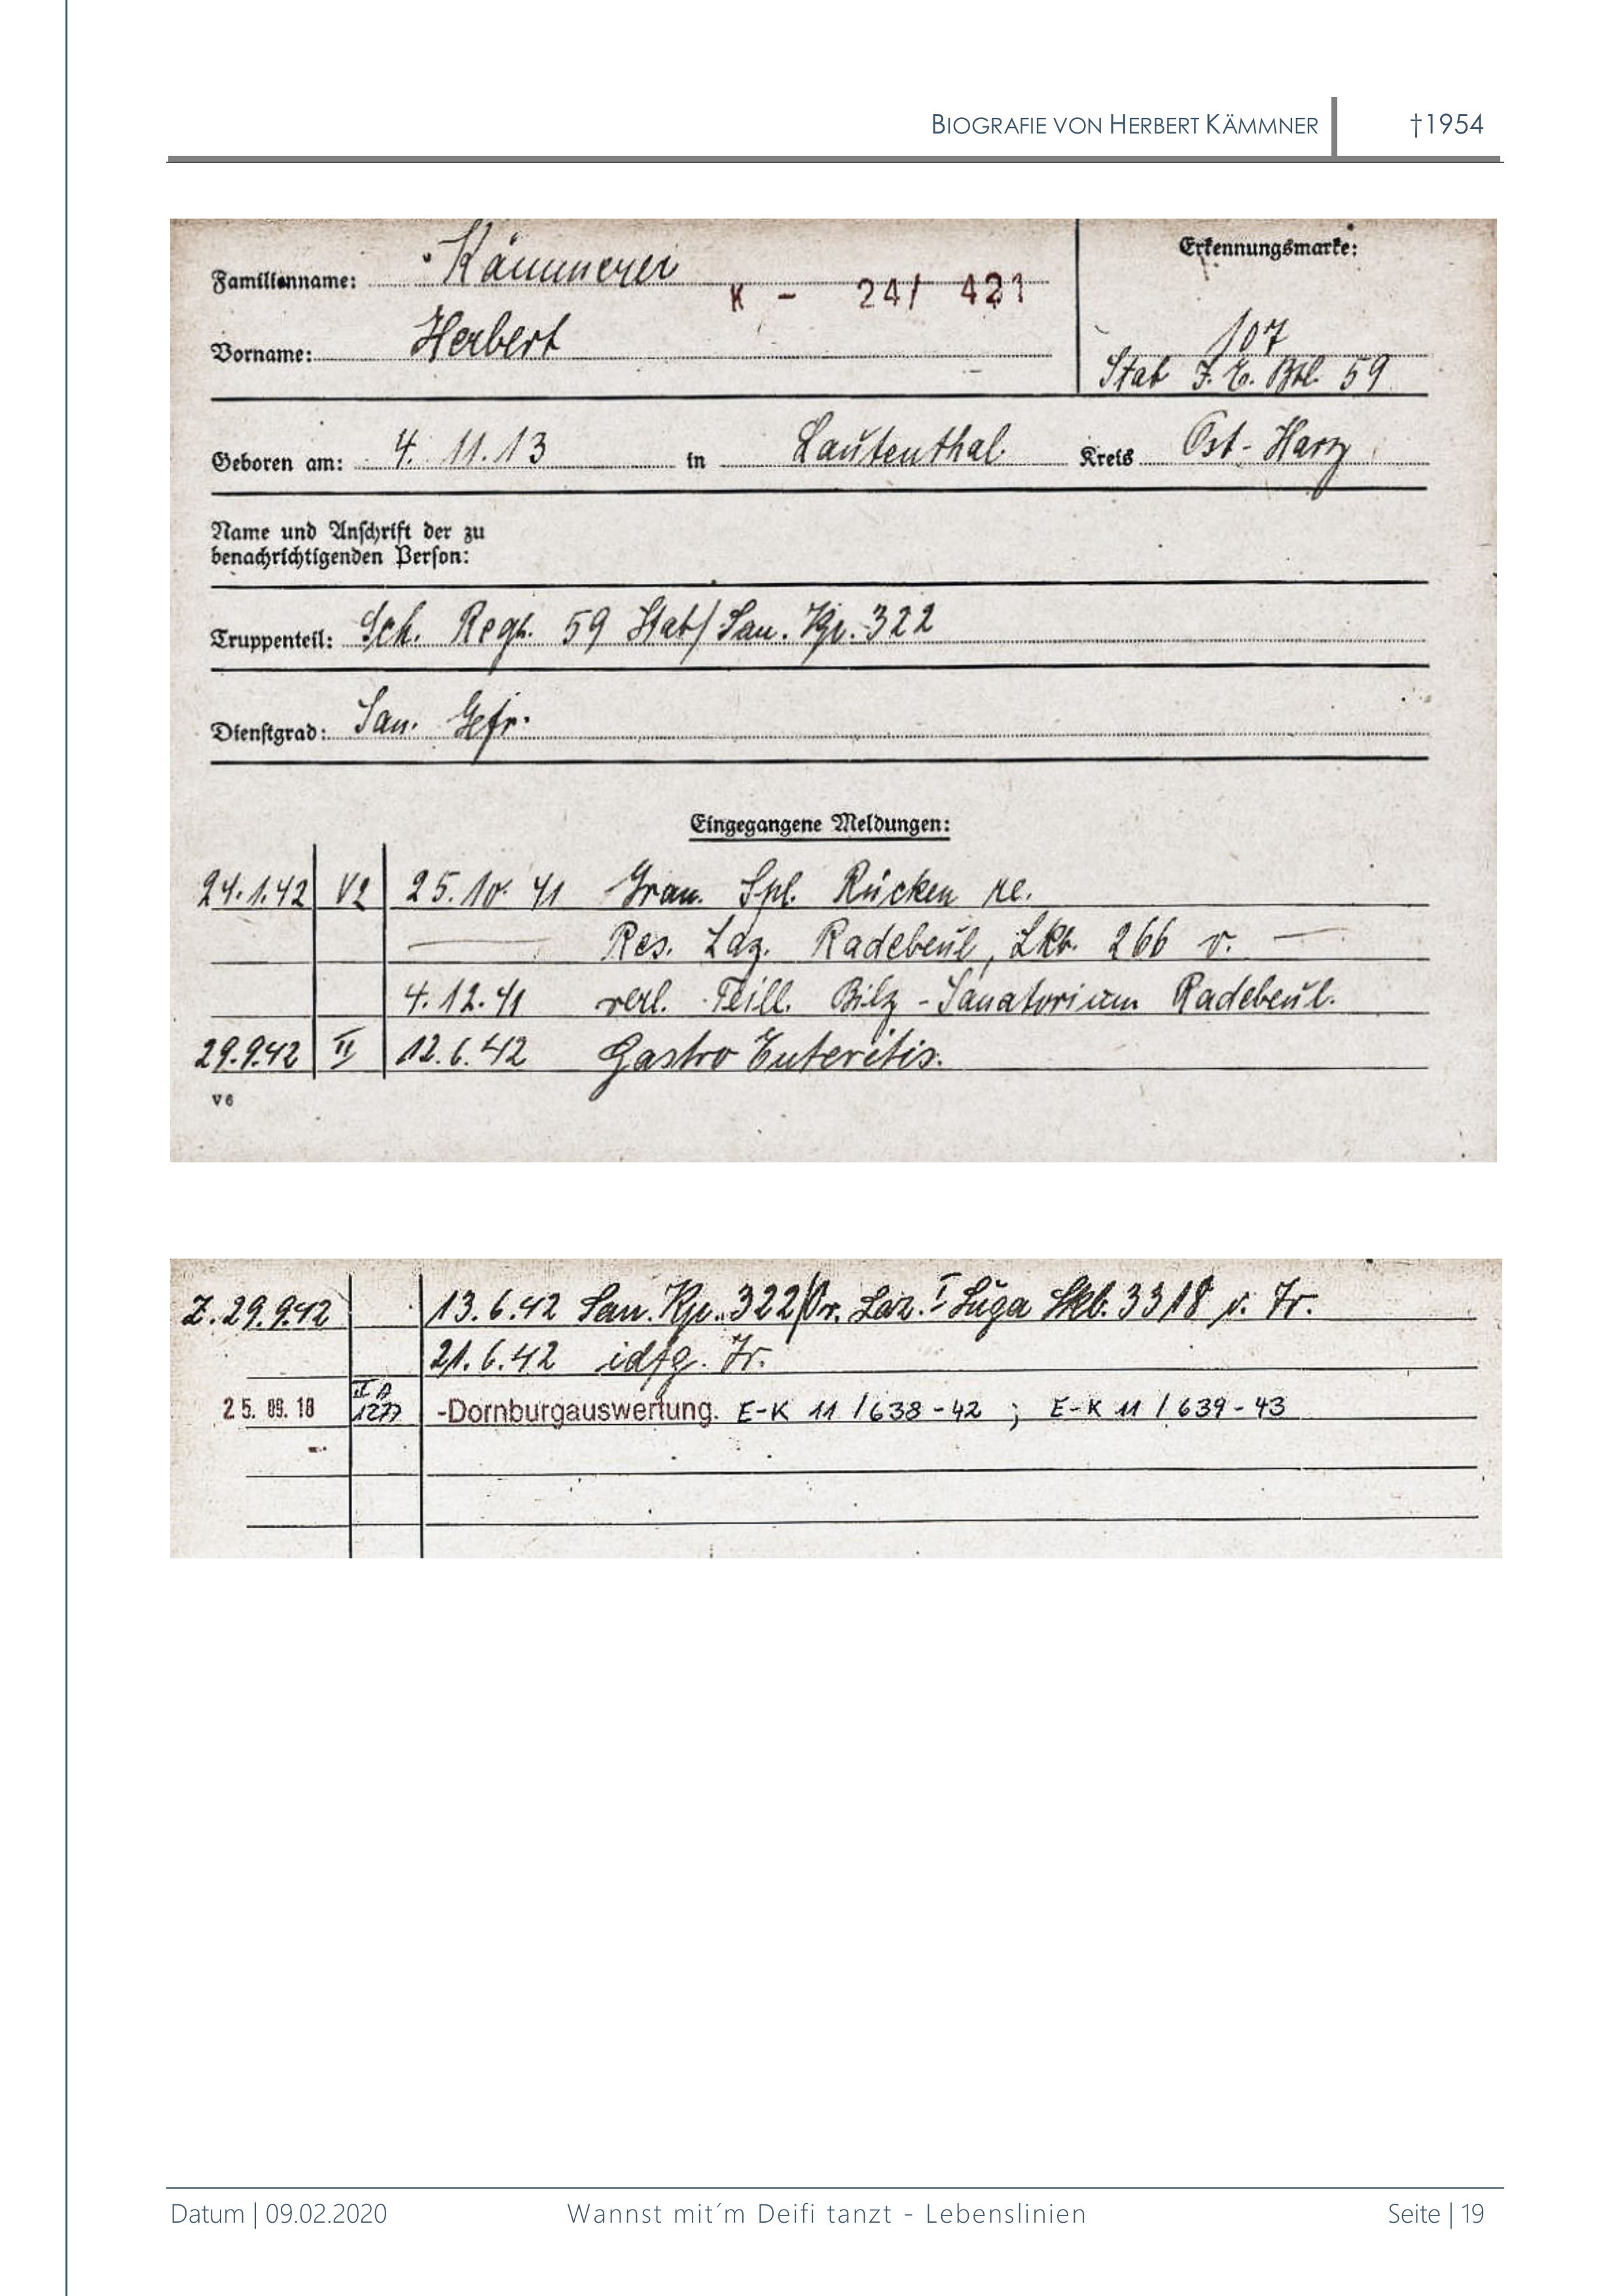 BIOGRAFIE VON HERBERT KÄMMNER †1954
Familienname: Kämmerer
K - 24/ 421
Vorname: Herbert
Erkennungsmarke:
107
Stab I. E. Btl. 59
Geboren am: 4. 11.13 in Lautenthal. Kreis Ost-Harz
Name und Anschrift der zu
benachrichtigenden Person:
Truppenteil: Sch. Regt. 59 Stab/San. Kp. 322
Dienstgrad: San. Gefr.
Eingegangene Meldungen:
24.1.42 V2 25.10.41 Gran. Spl. Rücken re.
Res. Laz. Radebeul, Lkb. 266 v. —
4.12.41 verl. Teill. Bilz-Sanatorium Radebeul.
29.9.42 II 12.6.42 Gastro Enteritis.
V6
Z. 29.9.42 13.6.42 San. Kp. 322/Kr. Laz. I Luga Lkb. 3318 v. Tr.
21.6.42 idfg. Tr.
25. 09. 18 II A 1277 -Dornburgauswertung. E-K 11 / 638 - 42 ; E-K 11 / 639 - 43
Datum | 09.02.2020 Wannst mit´m Deifi tanzt - Lebenslinien Seite | 19